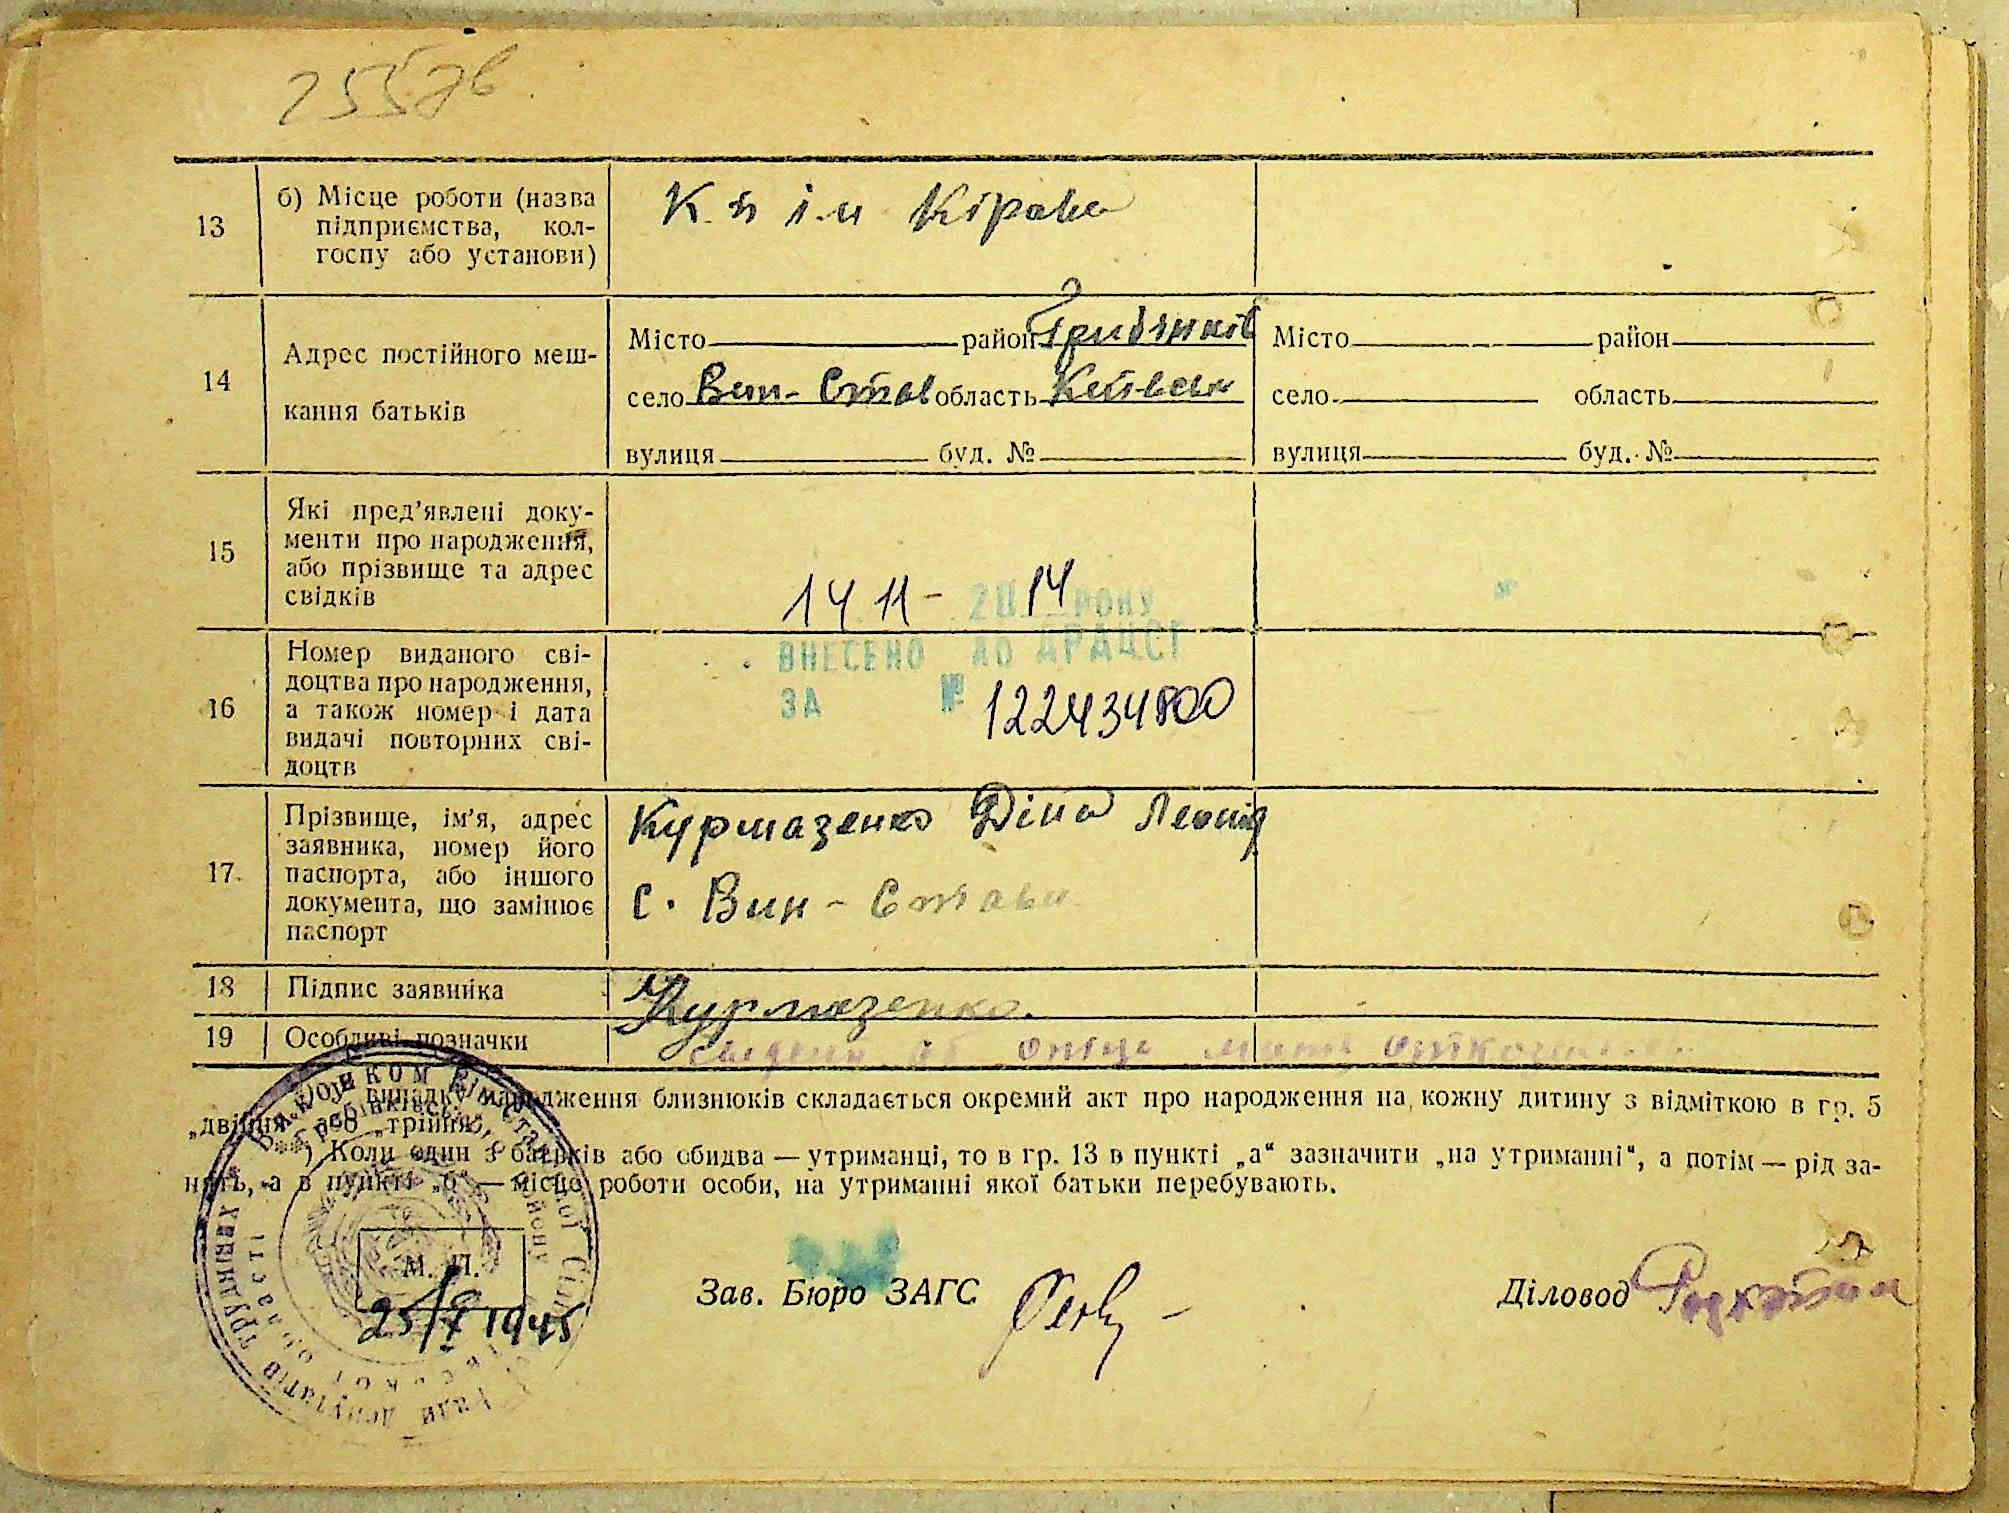 13
б) Місце роботи (назва
підприємства, кол-
госпу або установи)
К. п ім Кірова
14
Адрес постійного меш-
кання батьків
Місто район Гребінків
село Вин-Став область Київськ
вулиця буд. №
Місто район
село область
вулиця буд. №
15
Які пред'явлені доку-
менти про народження,
або прізвище та адрес
свідків
14 11 - 2014 РОКУ
ВНЕСЕНО ДО ДРАЦСГ
ЗА № 122434800
16
Номер виданого сві-
доцтва про народження,
а також номер і дата
видачі повторних сві-
доцтв
17
Прізвище, ім'я, адрес
заявника, номер його
паспорта, або іншого
документа, що замінює
паспорт
Курмазенко Діна Леонід
с. Вин-Стави
18
Підпис заявника
Курмазенко.
19
Особливі позначки
випадку народження близнюків складається окремий акт про народження на кожну дитину з відміткою в гр. 5
„двійня“ або „трійня“.
) Коли один з батьків або обидва — утриманці, то в гр. 13 в пункті „а“ зазначити „на утриманні“, а потім — рід за-
нять, а в пункті „б“ — місце роботи особи, на утриманні якої батьки перебувають.
М. П.
1945
Зав. Бюро ЗАГС
Діловод